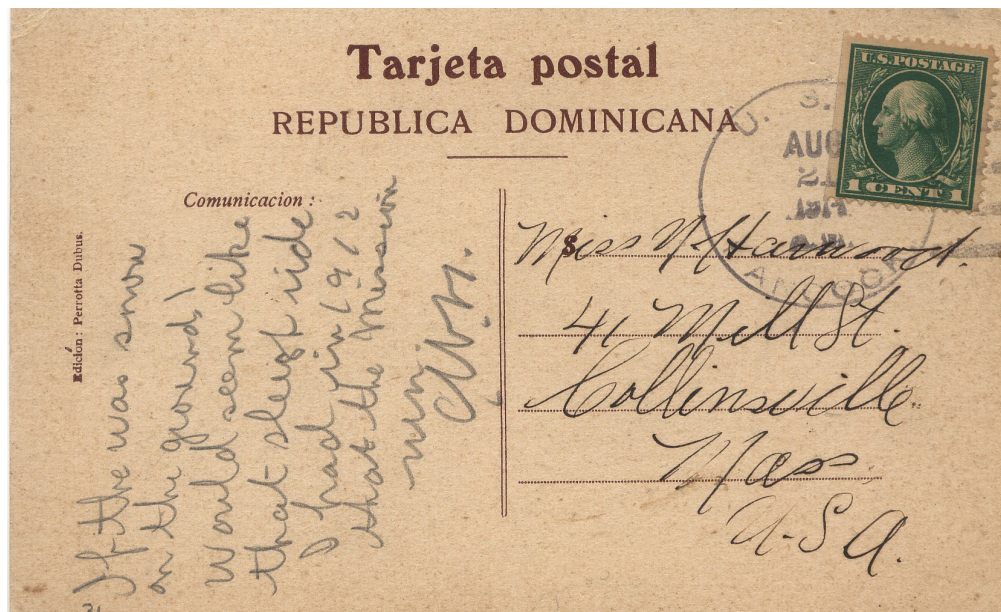 Tarjeta postal
REPUBLICA DOMINICANA
U.S. POSTAGE
1 CENT 1
U. S.
AUG
21
1914
Comunicacion :
Edición : Perrotta Dubus.
If the was snow
on the ground,
Would seem like
that sleigh ride
I had in 1912
that the Mission
Miss N Harwood.
41 Mill St.
Collinsville
Mass
U-S A.